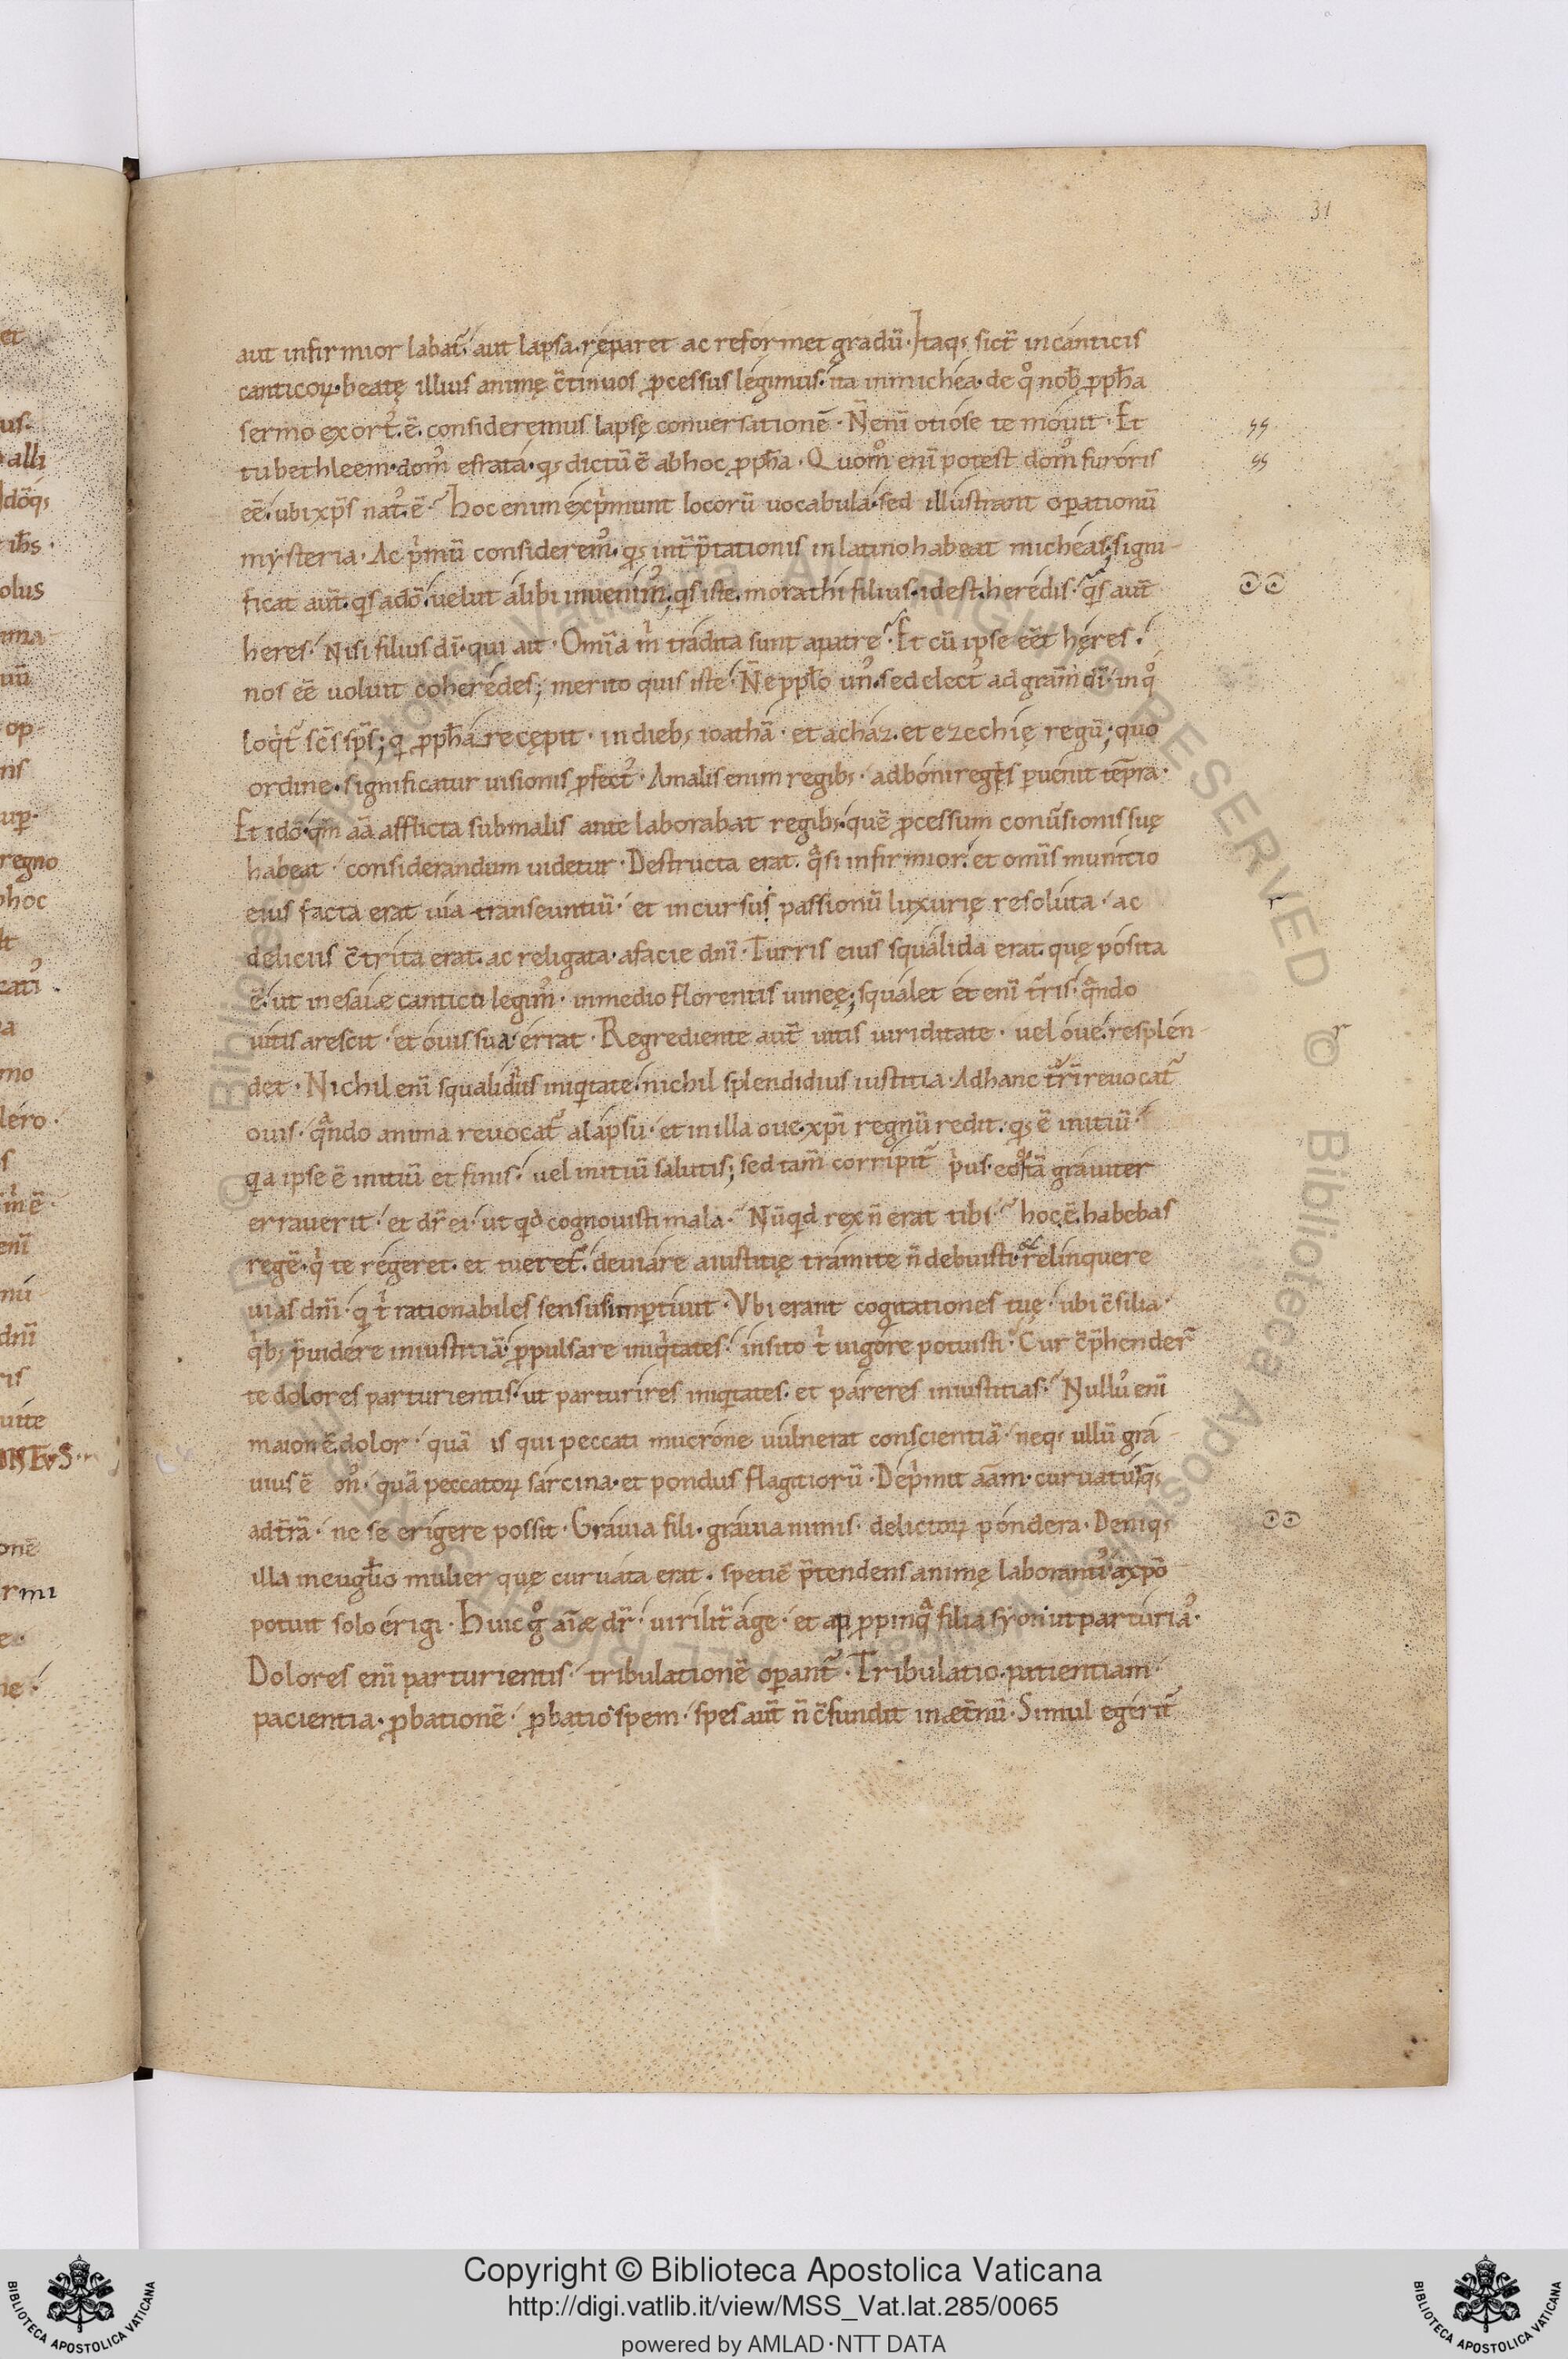 31
aut infirmior labat̃· aut lapsa reparet ac reformet gradū· Itaq; sicũt in canticis
canticoꝝ beatę illius animę c̃tinuos ꝓcessus legimus· ita in michea· de q̊ nob̄ ꝓph̄a
sermo exort᾿ ē· consideremus lapsę conuersationē· N̄ enī otiose te mouit· Et
tu bethleem· dom᾿ efrata· qs dictū ē ab hoc ꝓph̄a· Quom̊ enī potest dom᾿ furoris
eē· ubi xp̄s nat᾿ ē· hoc enim exp̍munt locorū uocabula· sed illustrant oꝑationū
mysteria· Ac p̍mū considerem᾿· qs int̄p̄tationis in latino habeat micheas; signi-
ficat aut̄· qs a dō· uelut alibi inuenim᾿; qs iste morathi filius· idest heredis· qs aut̄
heres· Nisi filius dī· qui ait· Om̄ia m̍ tradita sunt a patre· Et cū ipse eēt heres·
nos eē uoluit coheredes; merito quis iste· N̄ e ppl̄o un᾿· sed elect᾿ ad gram̄ dī· in q̊
loq̍t̃ sc̄s sp̄s; q ꝓph̄iā recępit· in dieb; ioathā· et achaz· et ezechię regū; quo
ordine· significatur uisionis ꝓfect᾿· A malis enim regib;· ad boni reges ꝑuenit tēpra·
Et idō· qm̄ aā afflicta sub malis ante laborabat regib;· quē ꝓcessum conūsionis suę
habeat· considerandum uidetur· Destructa erat qͣsi infirmior· et omīs munitio
eius facta erat uia transeuntiū· et incursus passionū luxurię resoluta· ac
deliciis c̃trita erat· ac religata· a facie dnī· Turris eius squalida erat· quę posita
ē· ut in esaiæ cantico legim᾿· in medio florentis uineę; squalet et enī t̄ris· qͣndo
uitis arescit· et ouis sua errat· Regrediente aut̄ uitis uiriditate· uel oue· resplen-
det· Nichil enī squalidius iniqͥtate· nichil splendidius iustitia· Ad hanc t̄rī reuocat̃
ouis· qͣndo anima reuocat̃ a lapsu· et in illa oue· xp̄i regnū redit· qs ē initiū·
qa ipse ē initiū et finis· uel initiū salutis; sed tam̄ corripit̃ p̍us· eo qd tā grauiter
errauerit· et dr̄ ei· ut qd cognouisti mala· Nūqͥd rex n̄ erat tibi· hoc ē habebas
regē· q̍ te regeret· et tueret̃· deuiare a iustitię tramite n̄ debuisti· relinquere
uias dnī· q t̍ rationabiles sensus impertiuit· Vbi erant cogitationes tuę· ubi c̃silia·
q̍b; p̄uidere iniustitiā· ꝓpulsare iniq̍tates· insito t̍ uigore potuisti· Cur c̃p̄hender̃
te dolores parturientis· ut parturires iniqͥtates· et pareres iniustitias· Nullᷤ enī
maior ē dolor· quā is qui peccati mucrone uulnerat conscientiā· neq; ullū gra-
uius ē on᾿· quā peccatoꝝ sarcina· et pondus flagitiorū· Dep̍mit aām· curuat usq;
ad t̄rā· ne se erigere possit· Grauia fili· grauia nimis· delictoꝝ pondera· Deniq;
illa in eugl̄io mulier quę curuata erat· spetiē p̄tendens animę laborantis· a xp̄o
potuit solo erigi· Huic ḡ aīæ dr̄· uirilit̄ age· et ap̄ppinqͣ filia syon· ut parturia᾿·
Dolores enī parturientis· tribulationē oꝑant̃· Tribulatio· patientiam·
pacientia· ꝓbationē· ꝓbatio spem· spes aut̄ n̄ c̃fundit in æt̄nū· Simul egerit̃
Copyright © Biblioteca Apostolica Vaticana
http://digi.vatlib.it/view/MSS_Vat.lat.285/0065
powered by AMLAD·NTT DATA
BIBLIOTECA APOSTOLICA VATICANA
BIBLIOTECA APOSTOLICA VATICANA